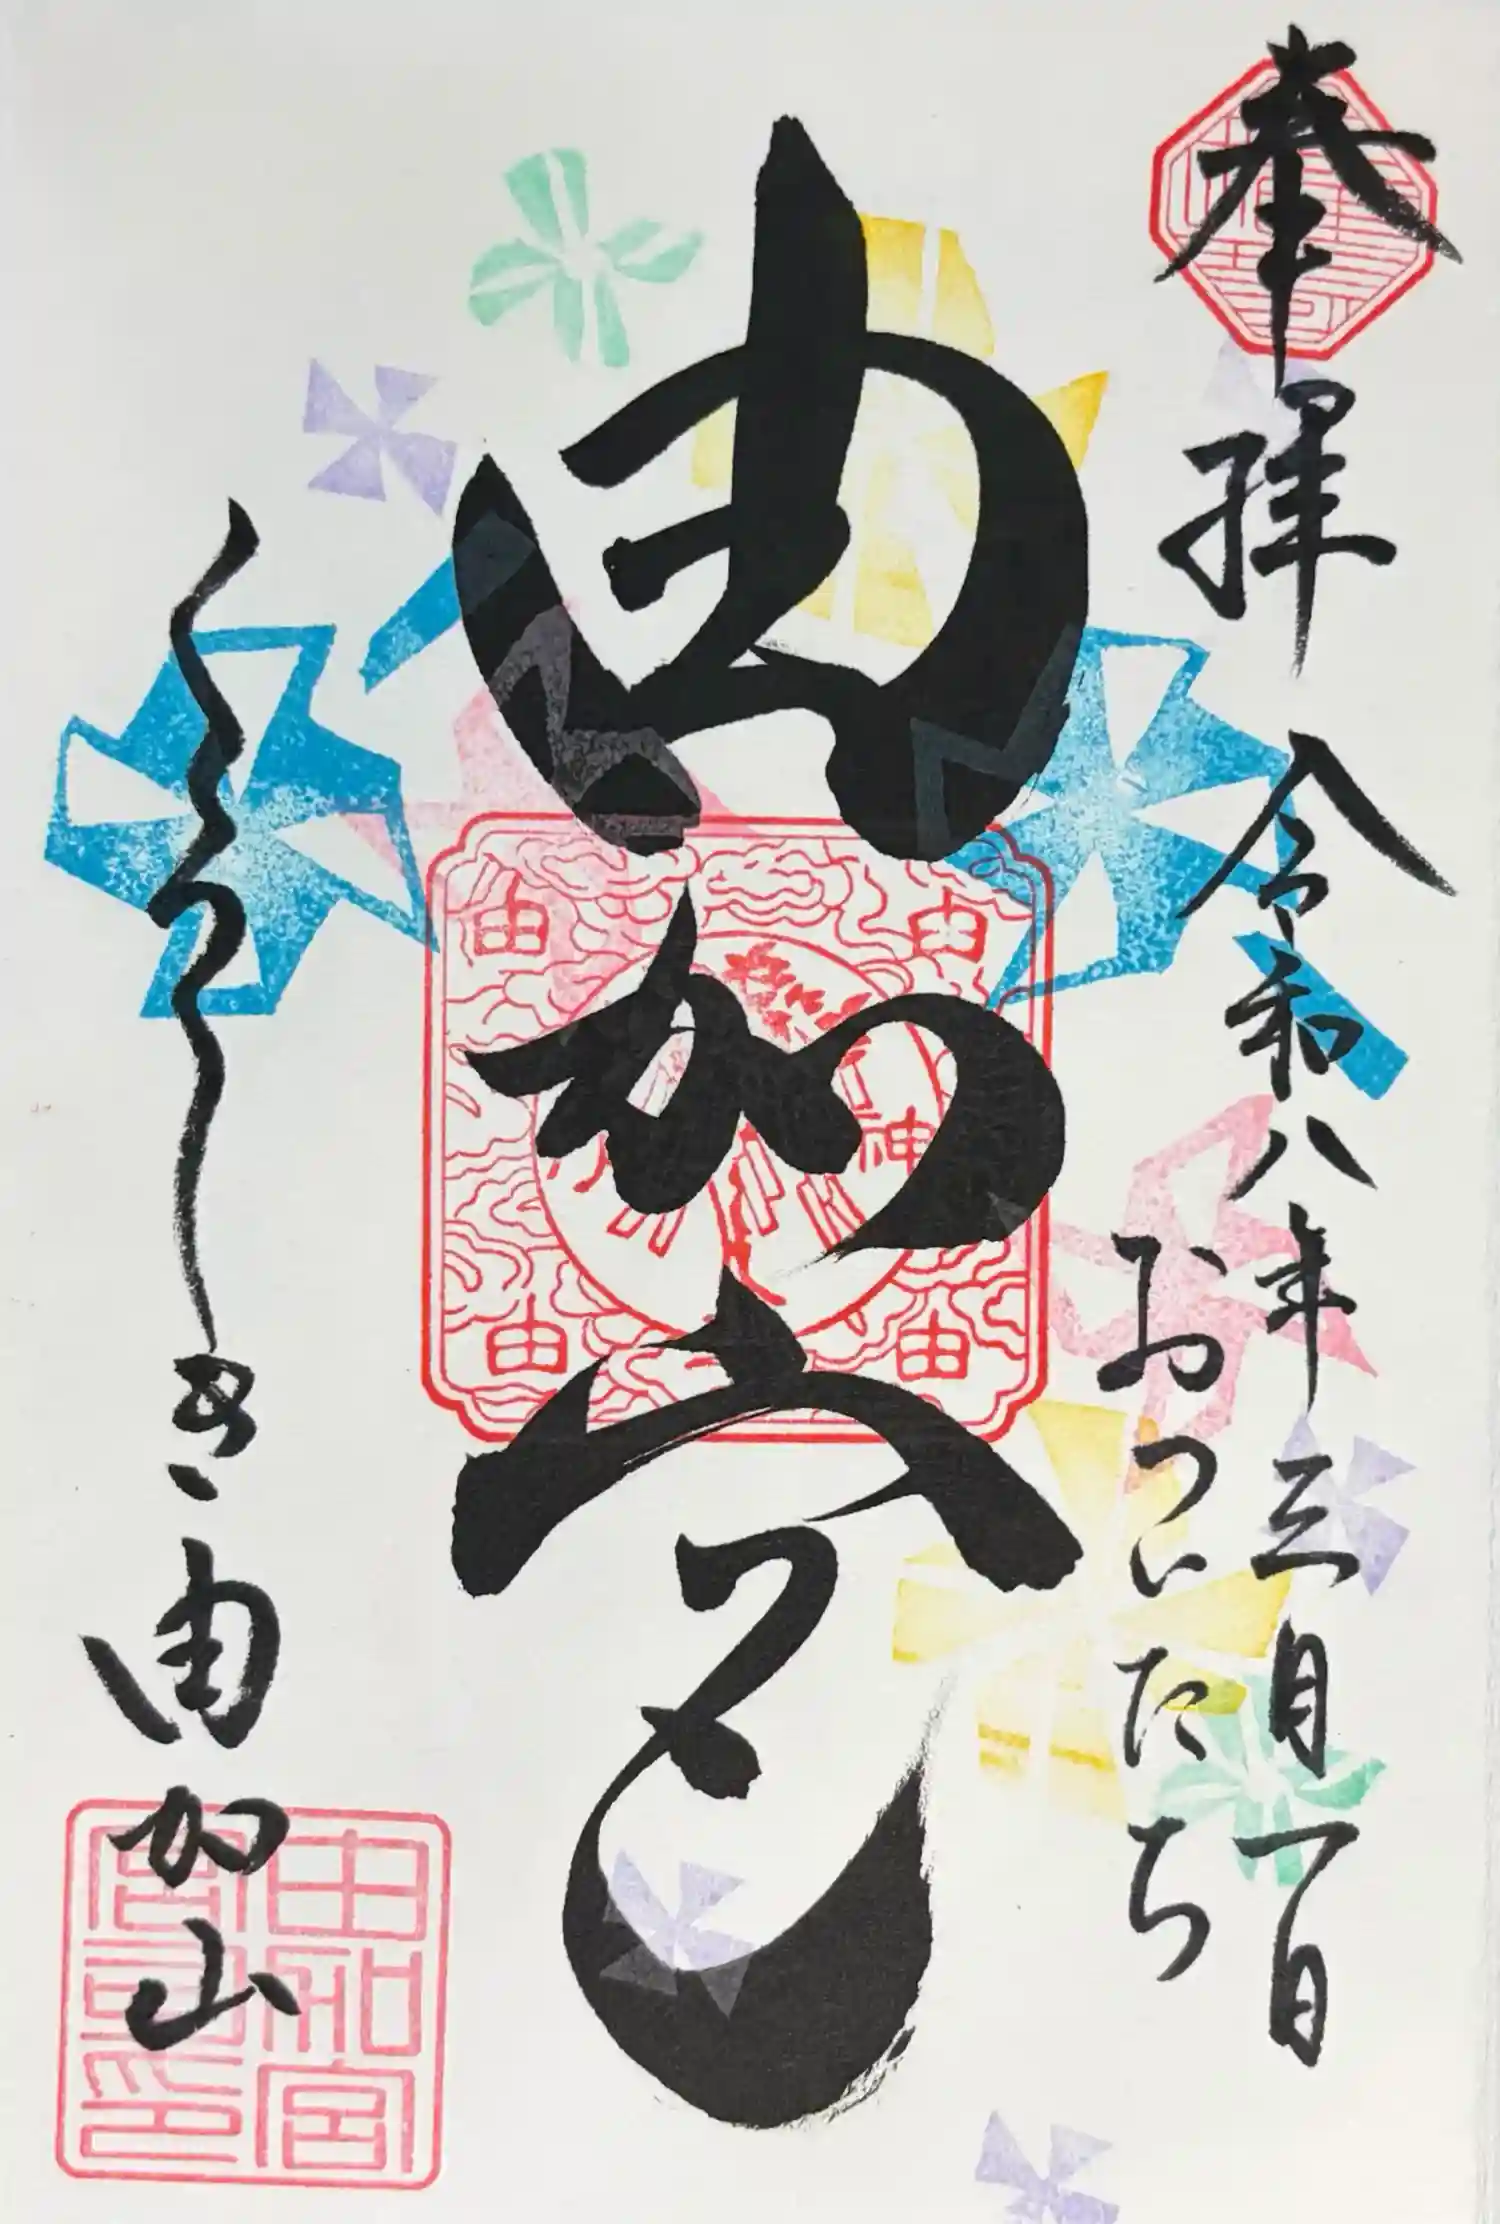 奉拝
令和八年三月一日
おついたち
由加宮
由 由
神
由 由
くらしき由加山
由加宮
宮司印